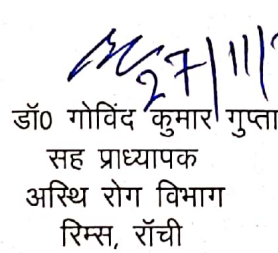 27/11/
डॉ0 गोविंद कुमार गुप्ता
सह प्राध्यापक
अस्थि रोग विभाग
रिम्स, रॉची